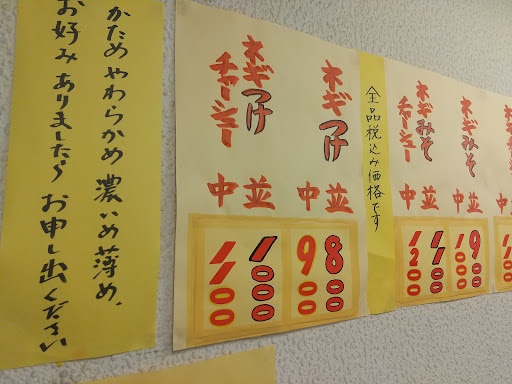 ネギみそ
並 中
900 1000
ネギみそ
チャーシュー
並 中
1100 1200
全品税込み価格です
ネギつけ
並 中
800 900
ネギつけ
チャーシュー
並 中
1000 1100
かためやわらかめ 濃いめ薄め、
お好みありましたら お申し出ください